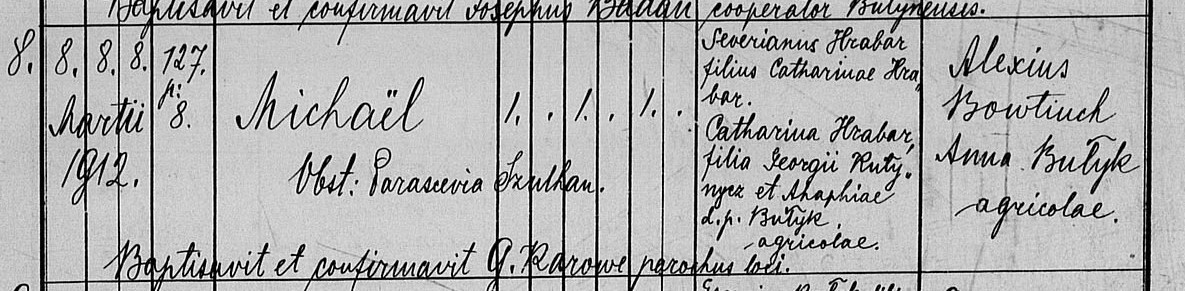 Baptisavit et confirmavit Josephus Badan cooperator Butynenses.
8. 8. 8. 8. 127.
p: 8.
Martii
1912.
Michaël 1. . 1. . 1. .
Obst: Parascevia Szulhan.
Severianus Hrabar
filius Catharinae Hra„
bar.
Catharina Hrabar,
filia Georgii Kuty„
nycz et Ahaphiae
d.p. Butyk
agricolae.
Alexius
Bowtiuch
Anna Butyk
agricolae.
Baptisavit et confirmavit G. Karowe parochus loci.